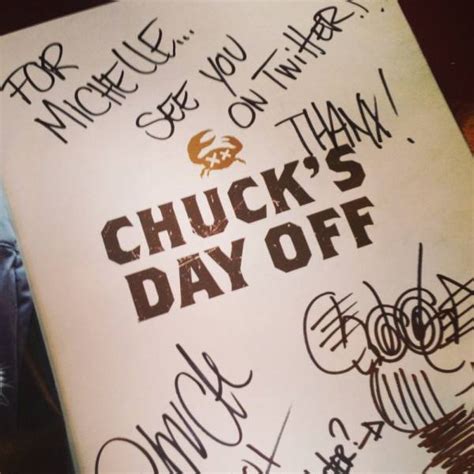 FOR
MICHELLE...
SEE YOU
ON TWITTER!!
THANX!
CHUCK'S
DAY OFF
Chuck